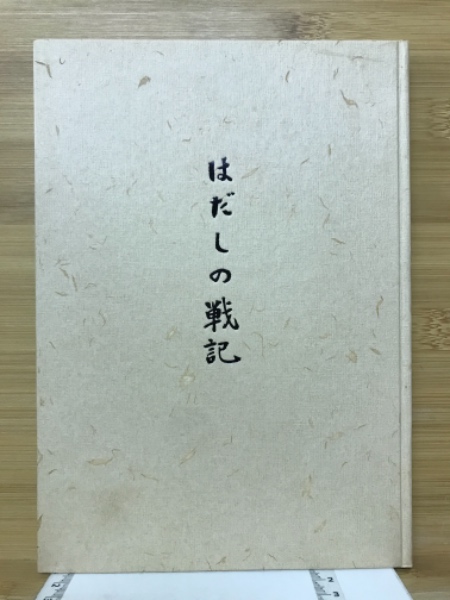 はだしの戦記